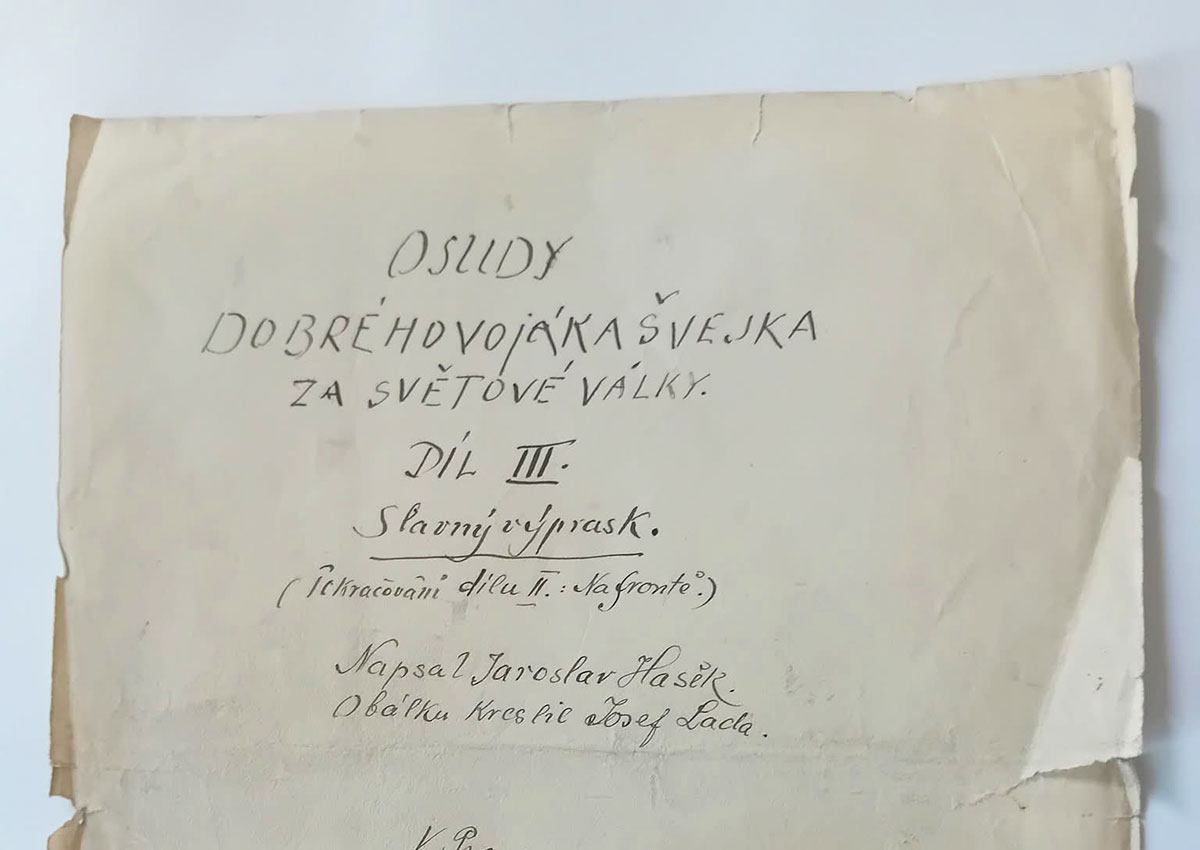 OSUDY
DOBRÉHO VOJÁKA ŠVEJKA
ZA SVĚTOVÉ VÁLKY.
DÍL III.
Slavný výprask.
( dílu II.: Na frontě.)
Napsal Jaroslav Hašek.
Obálku kreslil Josef Lada.